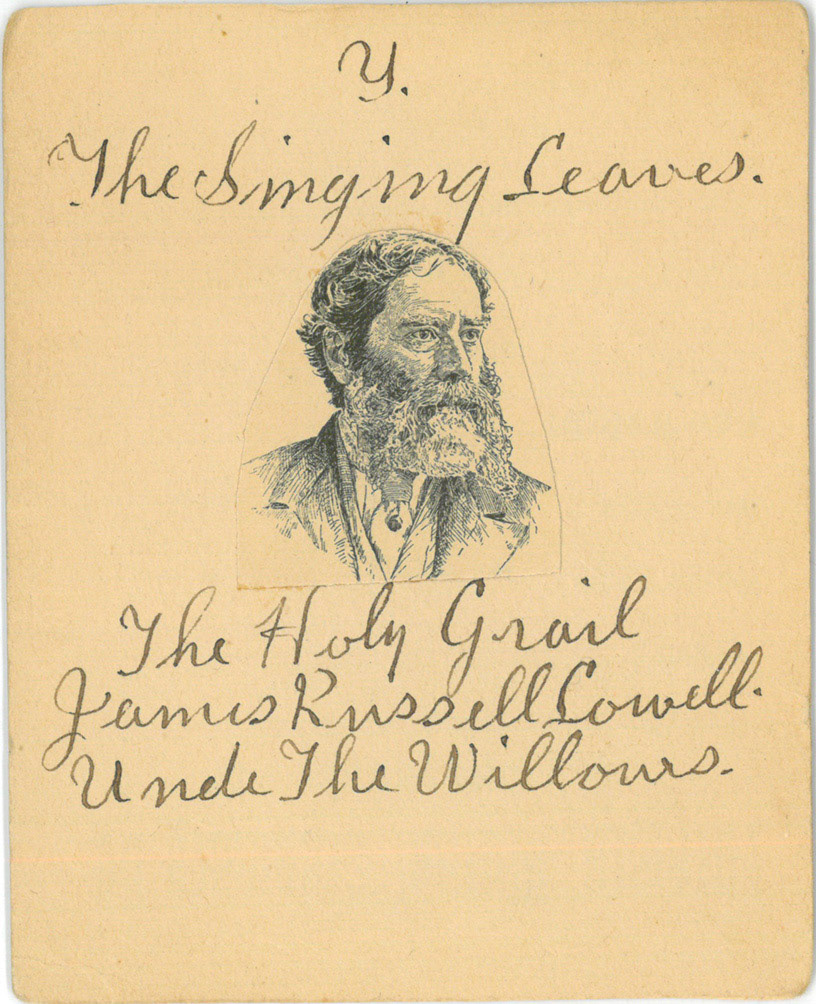 Y.
The Singing Leaves.
The Holy Grail
James Russell Lowell.
Unde The Willows.